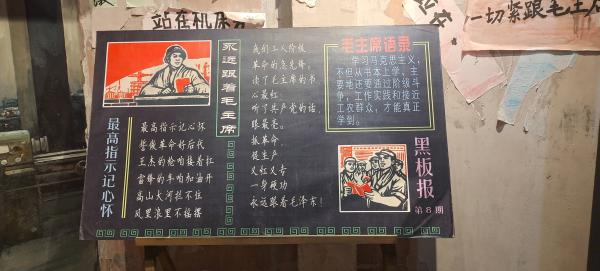 站在机床
一切紧跟毛主
永远跟着毛主席
最高指示记心怀
最高指示记心怀
誓做革命好后代
王杰的枪咱接着扛
雷锋的车咱加油开
高山大河拦不住
风里浪里不摇摆
我们工人阶级
革命的急先锋，
读了毛主席的书
心最红，
听了共产党的话，
眼最亮。
抓革命，
促生产
又红又专
一身硬功
永远跟着毛泽东！
毛主席语录
学习马克思主义，
不但从书本上学，主
要地还要通过阶级斗
争，工作实践和接近
工农群众，才能真正
学到。
黑板报
第8期